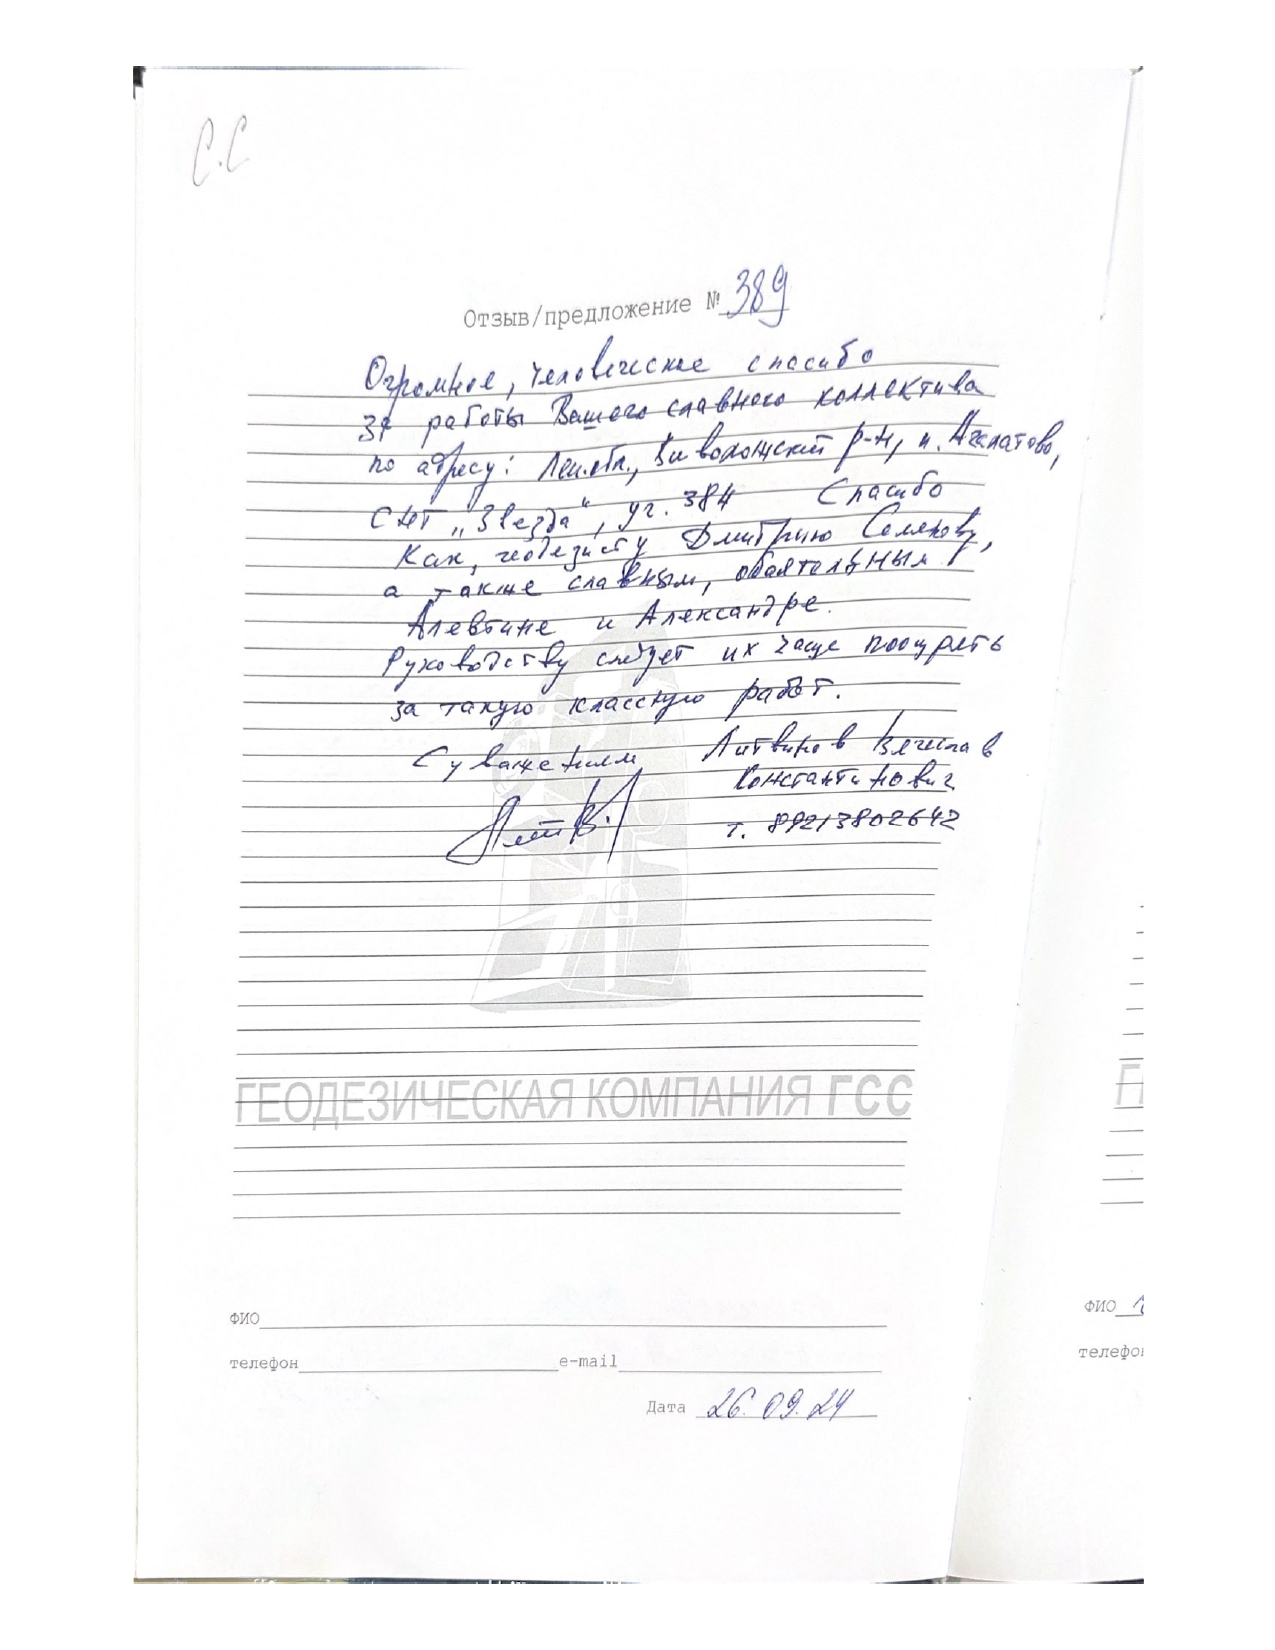 С.С
Отзыв/предложение № 389
Огромное, человеческое спасибо
за работы Вашего славного коллектива
по адресу: Лен.обл., Всеволожский р-н, п. Агалатово,
СНТ „Звезда", уч. 384 Спасибо
Как, геодезисту Дмитрию
а также славным, обаятельным
Алевтине и Александре.
Руководству следует их чаще поощрять
за такую классную работ.
С уважением Литвинов Вячеслав
Константинович
т. 89213802642
ГЕОДЕЗИЧЕСКАЯ КОМПАНИЯ ГСС
ФИО
телефон e-mail
Дата 26.09.24
ФИО